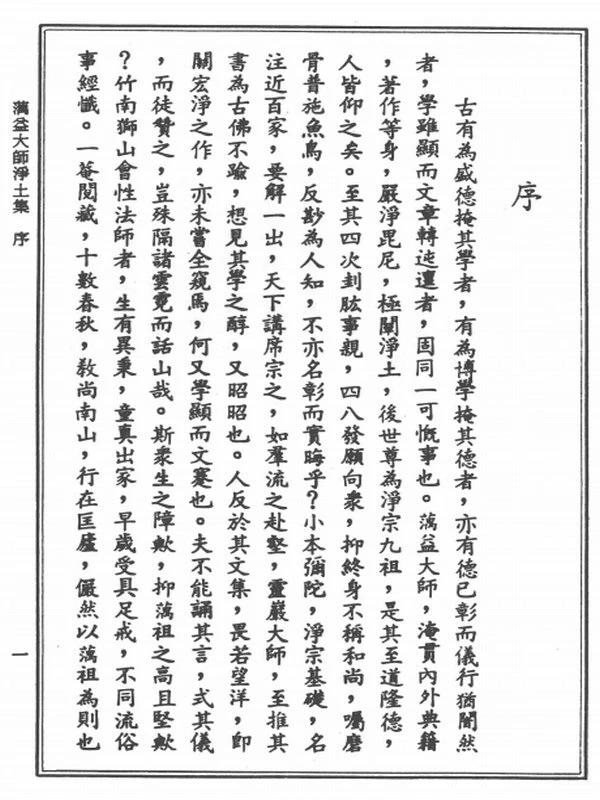 序
古有為盛德掩其學者，有為博學掩其德者，亦有德已彰而儀行猶闇然
者，學雖顯而文章轉迍邅者，固同一可慨事也。蕅益大師，淹貫內外典籍
，著作等身，嚴淨毘尼，極闡淨土，後世尊為淨宗九祖，是其至道隆德，
人皆仰之矣。至其四次刲肱事親，四八發願向衆，抑終身不稱和尚，囑磨
骨普施魚鳥，反尠為人知，不亦名彰而實晦乎？小本彌陀，淨宗基礎，名
注近百家，要解一出，天下講席宗之，如羣流之赴壑，靈巖大師，至推其
書為古佛不踰，想見其學之醇，又昭昭也。人反於其文集，畏若望洋，即
關宏淨之作，亦未嘗全窺焉，何又學顯而文蹇也。夫不能誦其言，式其儀
，而徒贊之，豈殊隔諸雲霓而話山哉。斯衆生之障歟，抑蕅祖之高且堅歟
？竹南獅山會性法師者，生有異秉，童真出家，早歲受具足戒，不同流俗
事經懺。一菴閱藏，十數春秋，敎尚南山，行在匡廬，儼然以蕅祖為則也
蕅益大師淨土集　序
一